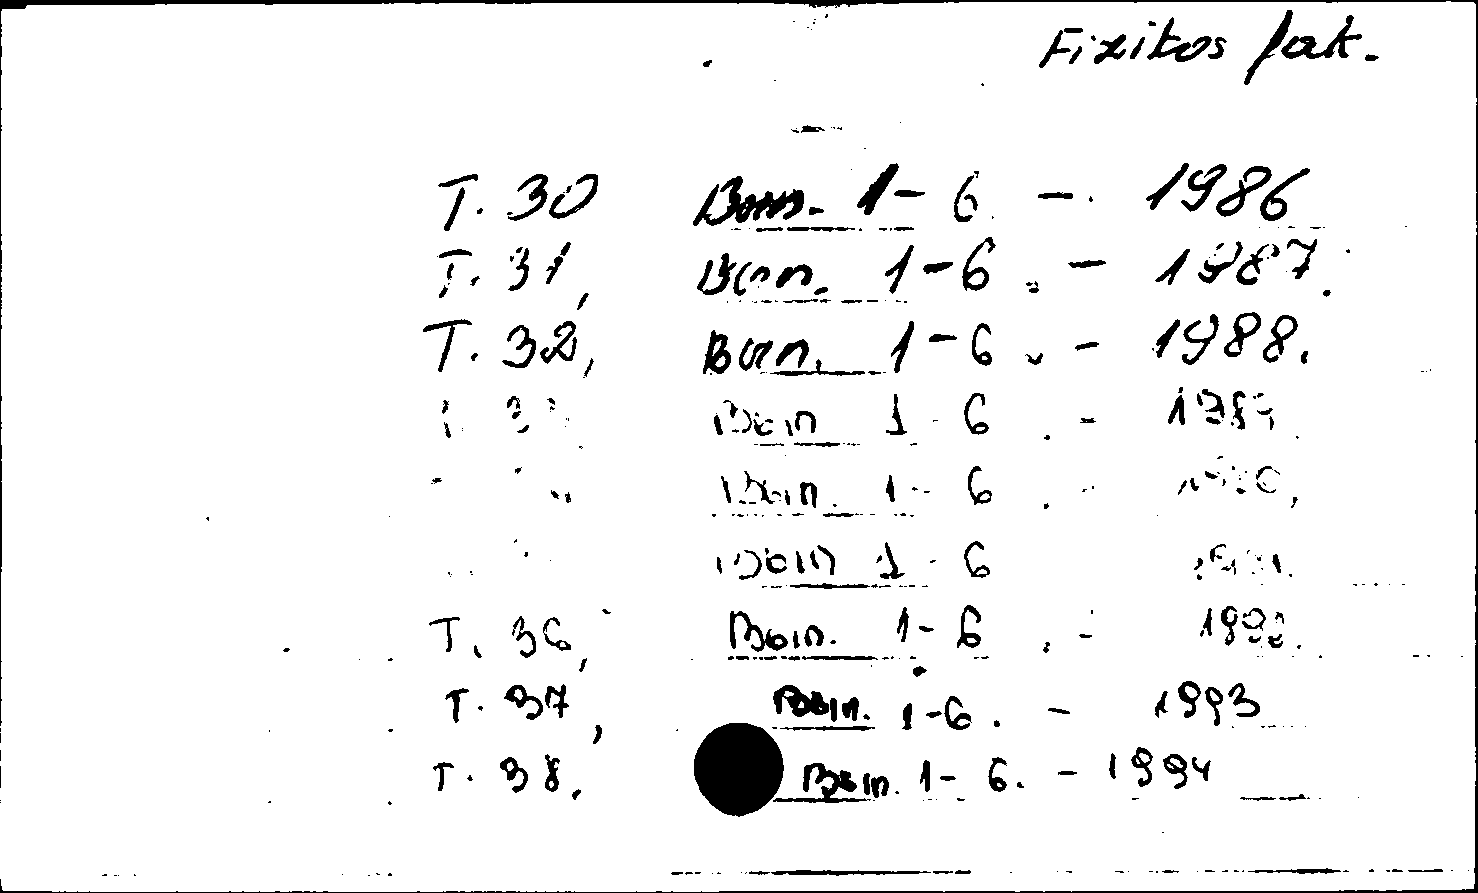 Fizikos fak.
T. 30 Вып. 1-6. - 1986
T. 31, Вып. 1-6. - 1987.
T. 32, Вып. 1-6. - 1988.
Вып 1-6. - 1989
Вып. 1-6. - 1990,
Вып 1-6
T. 36, Вып. 1-6. - 1992.
T. 37, Вып. 1-6. - 1993
T. 38. Вып. 1-6. - 1994